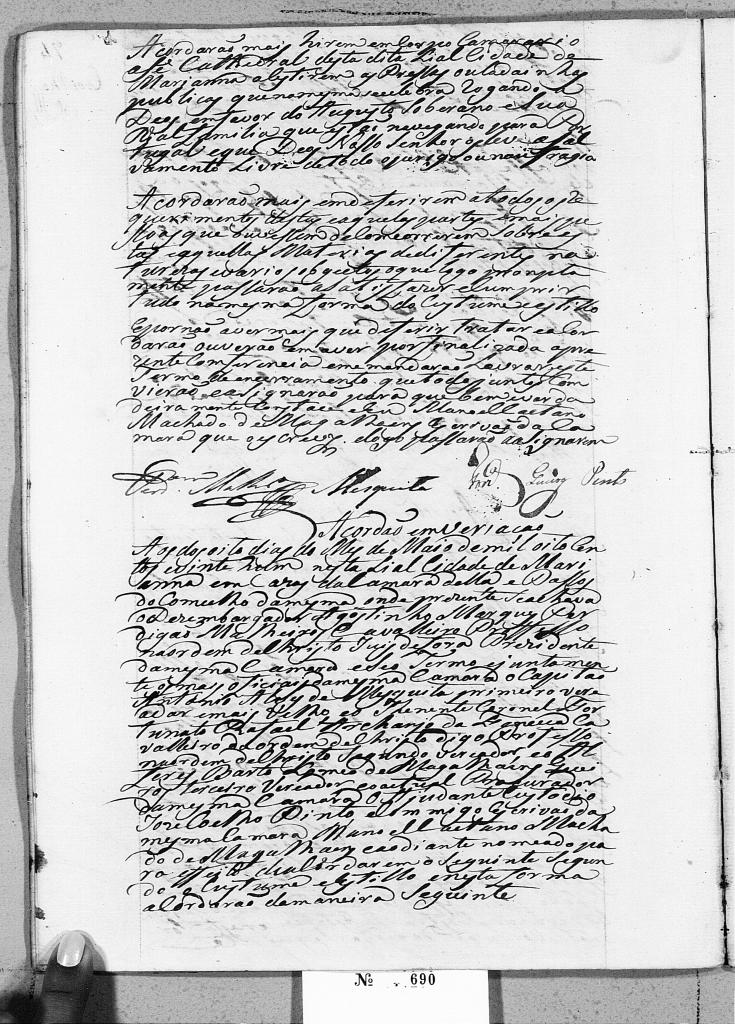 Acordaraõ mais hirem em Corpo Camerario
a Sé Cathedral desta dita Lial Cidade de
Marianna asistirem as Presses ou Ladainhas
publicas que na mesma secelebra rogando a
Deos em favor do Augusto Soberano e Sua
Rial familia que estaõ navegando para Por
tugal eque Deos Nosso Senhor os leve a sal
vamento Livre detodo operigo ou naufragio
Acordaraõ mais em deferirem atodos oste
querimentos destas eaquelas partes emais pe
soas que ouvessem de comcorrerem Sobre es
tas eaquellas Materias dediferentes na
turezas evarios obgectos oque logo prompta
mente passaraõ asatisfazer ecumprir
tudo namesma forma do Custume eestillo
Epornaõ aver mais que deferir Tratar eacor
daraõ ouveraõ em aver por finalizada apre
zente Comferencia emandaraõ Lavrar este
Termo de encerramento que todos juntos com
vieraõ easignaraõ para que bem everda
deiramente Constace eeu Manoel Caetano
Machado de Magalhaens Escrivaõ da Ca
mara que o escrevy elogo passaraõ aasignarem
Mesquita Pinto
Acordaõ em veriaçaõ
Aos dosoito dias do Mes de Maio demil oito Cen
tos evinte hum nesta Lial Cidade de Mari
anna em Cazas da Camara della e Passos
do Comcelho damesma onde prezente Seachava
o Dezembargador Agostinho Marques Per
digaõ Malheiros Cavalleiro Professo
naordem de Christo Juis de Fora Prezidente
damesma Camara eseo Termo ejuntamen
te os mais oficiais damesma Camara o Capitaõ
Antonio Alves de Mesquita primeiro vere
ador emais Velho, eo Thenente Coronel For
tunato Rafael Archanjo da Fonceca Ca
valleiro daordem de Christo digo Professo
naordem de Christo Segundo vereador, eo Al
feres Bartolomeo de Magalhaens Quei
ros terceiro Vereador eoactual Procurador
damesma Camara o Ajudante Custodio
Joze Coelho Pinto e Commigo Escrivaõ da
mesma Camara Manoel Caetano Macha
do de Magalhaens eaodiante nomeado pa
ra efeito de acordarem o Seguinte Segun
do o Custume eestillo enesta forma
acordaraõ damaneira Seguinte
Nº 690